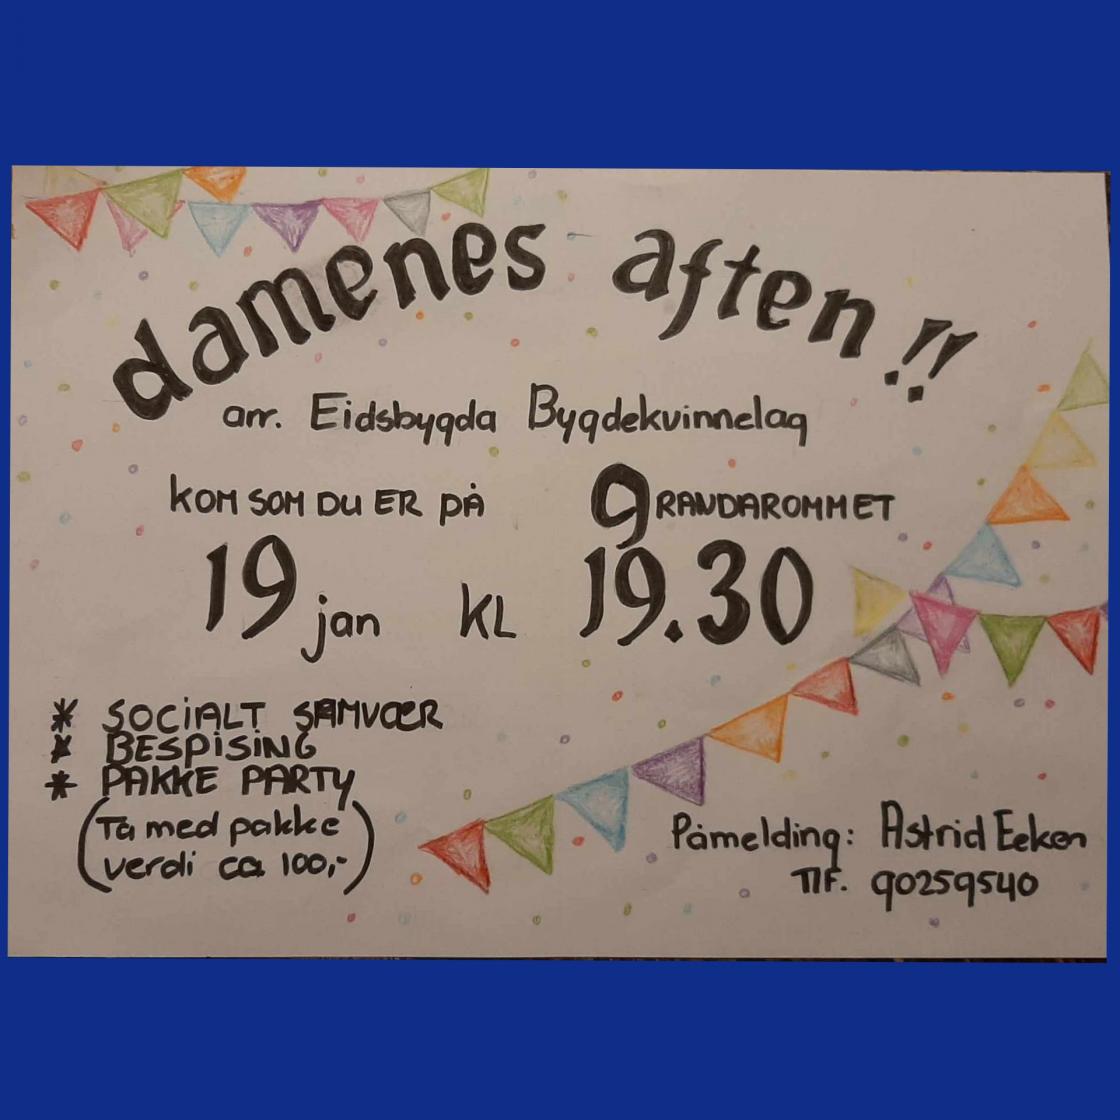 damenes aften !!
arr. Eidsbygda Bygdekvinnelag
KOM SOM DU ER PÅ GRANDAROMMET
19 jan KL 19.30
* SOCIALT SAMVÆR
* BESPISING
* PAKKE PARTY
(Ta med pakke
verdi ca 100,-)
Påmelding: Astrid Eeken
Tlf. 90259540